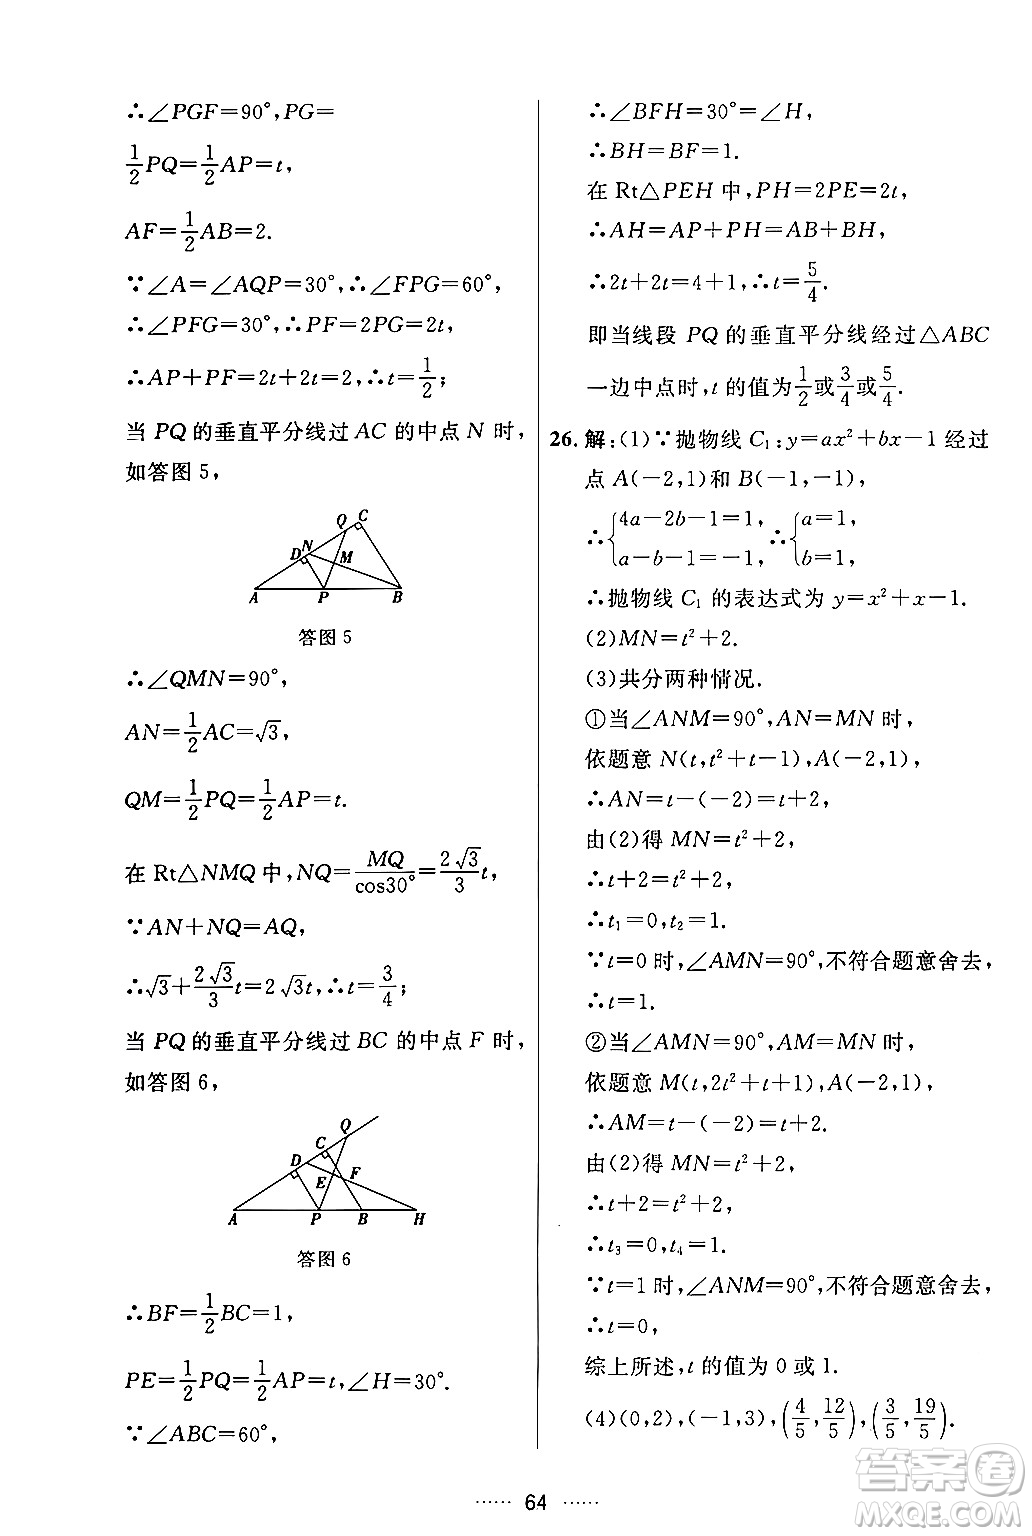 ∴∠PGF=90°,PG=
1/2PQ=1/2AP=t,
AF=1/2AB=2.
∵∠A=∠AQP=30°,∴∠FPG=60°,
∴∠PFG=30°,∴PF=2PG=2t,
∴AP+PF=2t+2t=2,∴t=1/2;
当 PQ 的垂直平分线过 AC 的中点 N 时,
如答图 5,
Q C
D N M
A P B
答图 5
∴∠QMN=90°,
AN=1/2AC=√3,
QM=1/2PQ=1/2AP=t.
在 Rt△NMQ 中,NQ=MQ/cos30°=2√3/3t,
∵AN+NQ=AQ,
∴√3+2√3/3t=2√3t,∴t=3/4;
当 PQ 的垂直平分线过 BC 的中点 F 时,
如答图 6,
Q
C
D E F
A P B H
答图 6
∴BF=1/2BC=1,
PE=1/2PQ=1/2AP=t,∠H=30°.
∵∠ABC=60°,
∴∠BFH=30°=∠H,
∴BH=BF=1.
在 Rt△PEH 中,PH=2PE=2t,
∴AH=AP+PH=AB+BH,
∴2t+2t=4+1,∴t=5/4.
即当线段 PQ 的垂直平分线经过△ABC
一边中点时,t 的值为1/2或3/4或5/4.
26. 解:(1)∵抛物线 C₁:y=ax²+bx-1 经过
点 A(-2,1)和 B(-1,-1),
∴{4a-2b-1=1, a-b-1=-1, ∴{a=1, b=1,
∴抛物线 C₁ 的表达式为 y=x²+x-1.
(2)MN=t²+2.
(3)共分两种情况.
①当∠ANM=90°,AN=MN 时,
依题意 N(t,t²+t-1),A(-2,1),
∴AN=t-(-2)=t+2,
由(2)得 MN=t²+2,
∴t+2=t²+2,
∴t₁=0,t₂=1.
∵t=0 时,∠AMN=90°,不符合题意舍去,
∴t=1.
②当∠AMN=90°,AM=MN 时,
依题意 M(t,2t²+t+1),A(-2,1),
∴AM=t-(-2)=t+2.
由(2)得 MN=t²+2,
∴t+2=t²+2,
∴t₃=0,t₄=1.
∵t=1 时,∠ANM=90°,不符合题意舍去,
∴t=0,
综上所述,t 的值为 0 或 1.
(4)(0,2),(-1,3),(4/5,12/5),(3/5,19/5).
答案卷
MXQE.COM
…… 64 ……